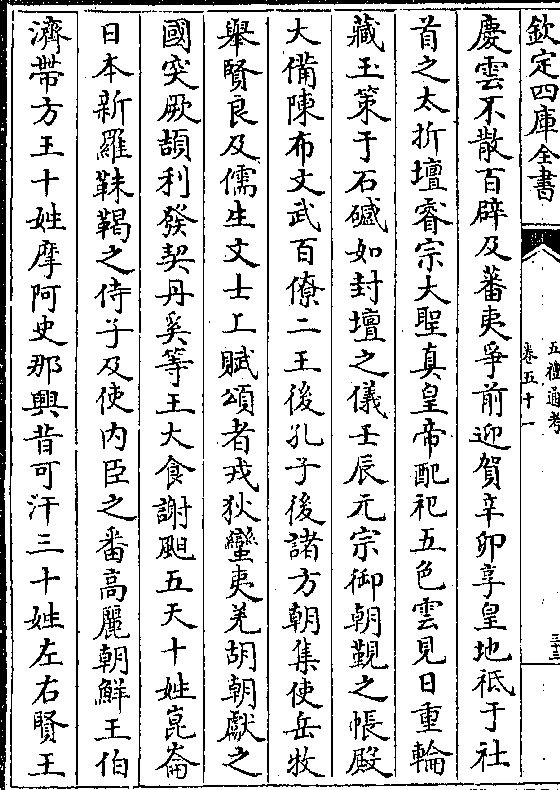 欽定四庫全書
五禮通考
卷五十一
三十三
慶雲不散百辟及蕃夷爭前迎賀辛卯享皇地祇于社
首之太折壇睿宗大聖真皇帝配祀五色雲見日重輪
藏玉策于石䃭如封壇之儀壬辰元宗御朝覲之帳殿
大備陳布文武百僚二王後孔子後諸方朝集使岳牧
舉賢良及儒生文士工賦頌者戎狄蠻夷羌胡朝獻之
國突厥頡利發契丹奚等王大食謝䫻五天十姓崑崙
日本新羅靺鞨之侍子及使內臣之番高麗朝鮮王伯
濟帶方王十姓摩阿史那興昔可汗三十姓左右賢王